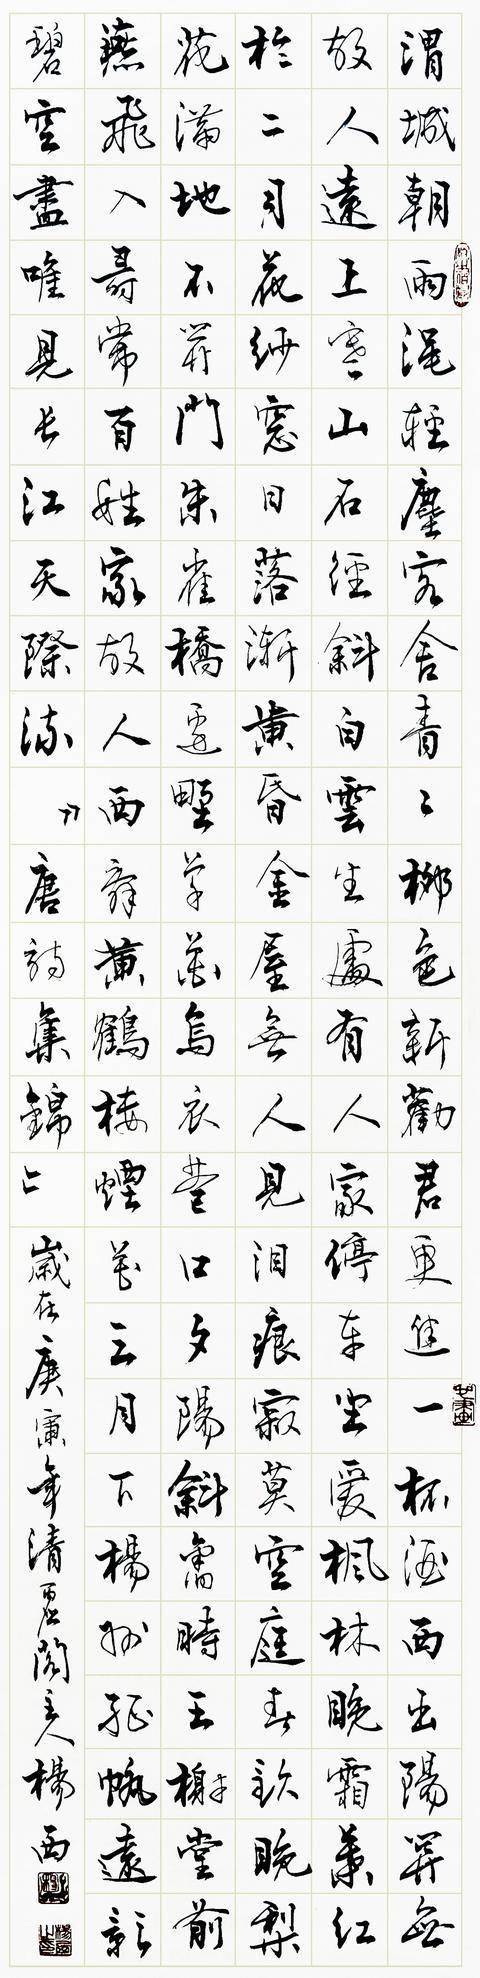 渭城朝雨浥輕塵客舍青〻柳色新勸君更進一杯酒西出陽關無
故人遠上寒山石徑斜白雲生處有人家停車坐愛楓林晚霜葉紅
於二月花紗窓日落漸黃昏金屋無人見泪痕寂莫空庭春欲晚梨
花滿地不開門朱雀橋邊野草花烏衣巷口夕陽斜舊時王謝堂前
燕飛入尋常百姓家故人西辭黃鶴樓煙花三月下揚州孤帆遠影
碧空盡唯見長江天際流 唐詩集錦 歲在庚寅年清閣主人楊西